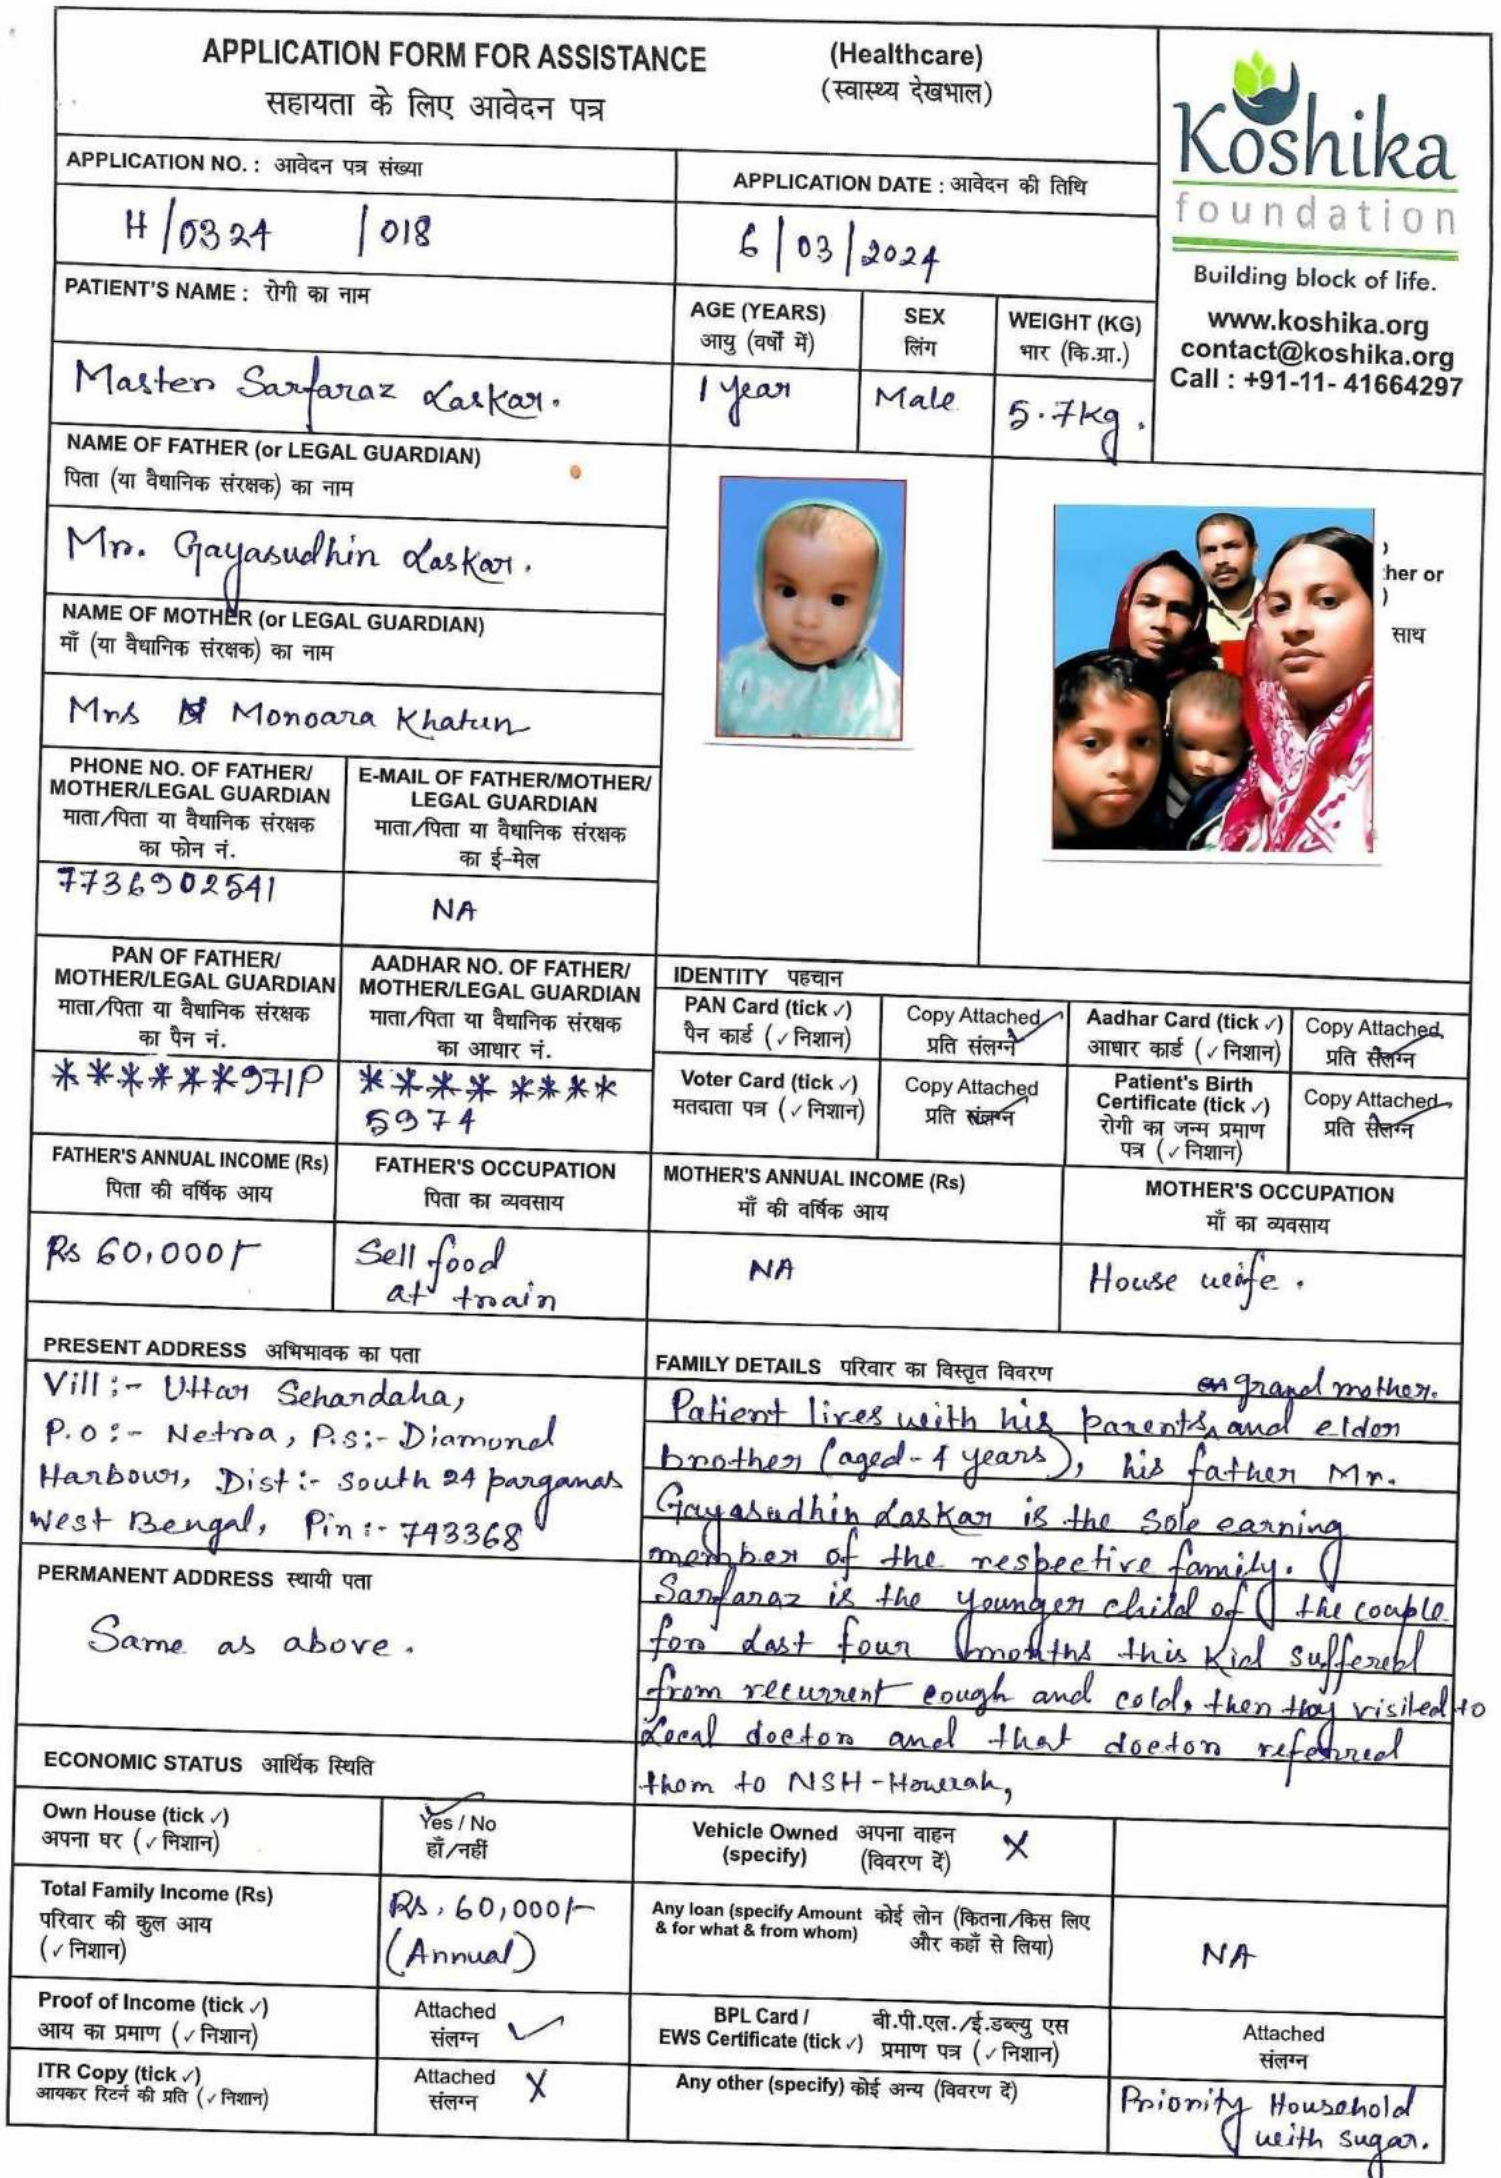 APPLICATION FORM FOR ASSISTANCE (Healthcare)
सहायता के लिए आवेदन पत्र (स्वास्थ्य देखभाल)
Koshika
foundation
Building block of life.
www.koshika.org
contact@koshika.org
Call : +91-11- 41664297
APPLICATION NO. : आवेदन पत्र संख्या
H/0324 /018
APPLICATION DATE : आवेदन की तिथि
6/03/2024
PATIENT'S NAME : रोगी का नाम
Master Sarfaraz Laskar.
AGE (YEARS)
आयु (वर्षों में)
1 year
SEX
लिंग
Male
WEIGHT (KG)
भार (कि.ग्रा.)
5.7kg.
NAME OF FATHER (or LEGAL GUARDIAN)
पिता (या वैधानिक संरक्षक) का नाम
Mr. Gayasudhin Laskar.
her or
)
साथ
NAME OF MOTHER (or LEGAL GUARDIAN)
माँ (या वैधानिक संरक्षक) का नाम
Mrs Monoara Khatun
PHONE NO. OF FATHER/
MOTHER/LEGAL GUARDIAN
माता/पिता या वैधानिक संरक्षक
का फोन नं.
7736902541
E-MAIL OF FATHER/MOTHER/
LEGAL GUARDIAN
माता/पिता या वैधानिक संरक्षक
का ई-मेल
NA
PAN OF FATHER/
MOTHER/LEGAL GUARDIAN
माता/पिता या वैधानिक संरक्षक
का पैन नं.
******971P
AADHAR NO. OF FATHER/
MOTHER/LEGAL GUARDIAN
माता/पिता या वैधानिक संरक्षक
का आधार नं.
**** ****
5974
IDENTITY पहचान
PAN Card (tick ✓)
पैन कार्ड (✓ निशान)
Copy Attached
प्रति संलग्न
Aadhar Card (tick ✓)
आधार कार्ड (✓ निशान)
Copy Attached
प्रति संलग्न
Voter Card (tick ✓)
मतदाता पत्र (✓ निशान)
Copy Attached
प्रति संलग्न
Patient's Birth
Certificate (tick ✓)
रोगी का जन्म प्रमाण
पत्र (✓ निशान)
Copy Attached
प्रति संलग्न
FATHER'S ANNUAL INCOME (Rs)
पिता की वर्षिक आय
Rs 60,000/-
FATHER'S OCCUPATION
पिता का व्यवसाय
Sell food
at train
MOTHER'S ANNUAL INCOME (Rs)
माँ की वर्षिक आय
NA
MOTHER'S OCCUPATION
माँ का व्यवसाय
House wife.
PRESENT ADDRESS अभिभावक का पता
Vill:- Uttar Sehardaha,
P.o:- Netra, P.s:- Diamond
Harbour, Dist:- South 24 parganas
West Bengal, Pin:- 743368
PERMANENT ADDRESS स्थायी पता
Same as above.
FAMILY DETAILS परिवार का विस्तृत विवरण
grand mother.
Patient lives with his parents, and elder
brother (aged-4 years), his father Mr.
Gayasudhin Laskar is the sole earning
member of the respective family.
Sarfaraz is the younger child of the couple
for last four months this kid suffered
from recurrent cough and cold, then they visited to
Local doctor and that doctor referred
them to NSH-Howrah,
ECONOMIC STATUS आर्थिक स्थिति
Own House (tick ✓)
अपना घर (✓ निशान)
Yes / No
हाँ/नहीं
Vehicle Owned अपना वाहन
(specify) (विवरण दें)
X
Total Family Income (Rs)
परिवार की कुल आय
(✓ निशान)
Rs. 60,000/-
(Annual)
Any loan (specify Amount कोई लोन (कितना/किस लिए
& for what & from whom) और कहाँ से लिया)
NA
Proof of Income (tick ✓)
आय का प्रमाण (✓ निशान)
Attached
संलग्न ✓
BPL Card / बी.पी.एल./ई.डब्ल्यु एस
EWS Certificate (tick ✓) प्रमाण पत्र (✓ निशान)
Attached
संलग्न
ITR Copy (tick ✓)
आयकर रिटर्न की प्रति (✓ निशान)
Attached X
संलग्न
Any other (specify) कोई अन्य (विवरण दें)
Priority Household
with sugar.